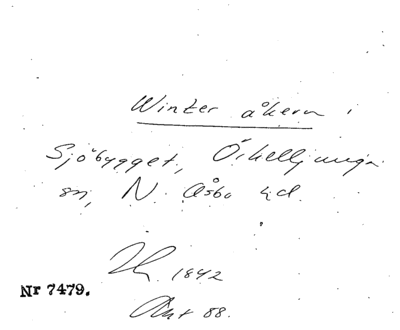 Winter åkern i
Sjöbygget, Örkelljunga
sn, N. Åsbo hd.
1842
Nr 7479.
88.